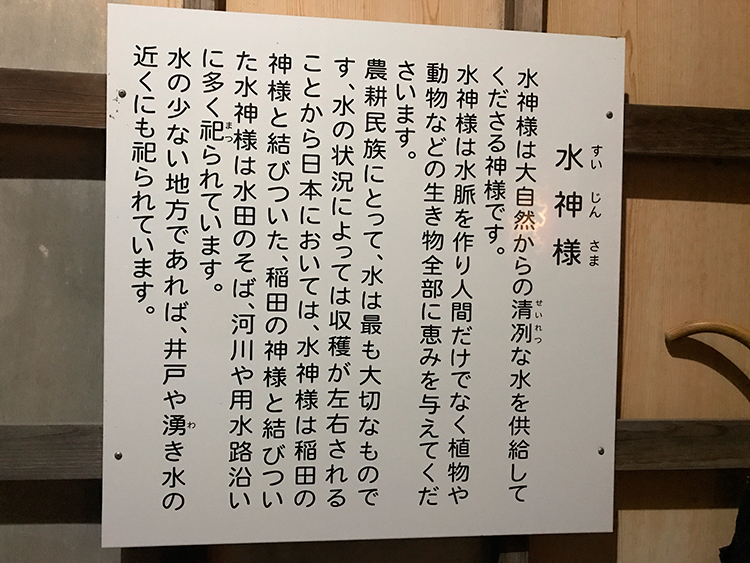 水神様
すいじんさま
水神様は大自然からの清冽な水を供給して
せいれつ
くださる神様です。
水神様は水脈を作り人間だけでなく植物や
動物などの生き物全部に恵みを与えてくだ
さいます。
農耕民族にとって、水は最も大切なもので
す、水の状況によっては収穫が左右される
ことから日本においては、水神様は稲田の
神様と結びついた、稲田の神様と結びつい
た水神様は水田のそば、河川や用水路沿い
に多く祀られています。
まつ
水の少ない地方であれば、井戸や湧き水の
わ
近くにも祀られています。